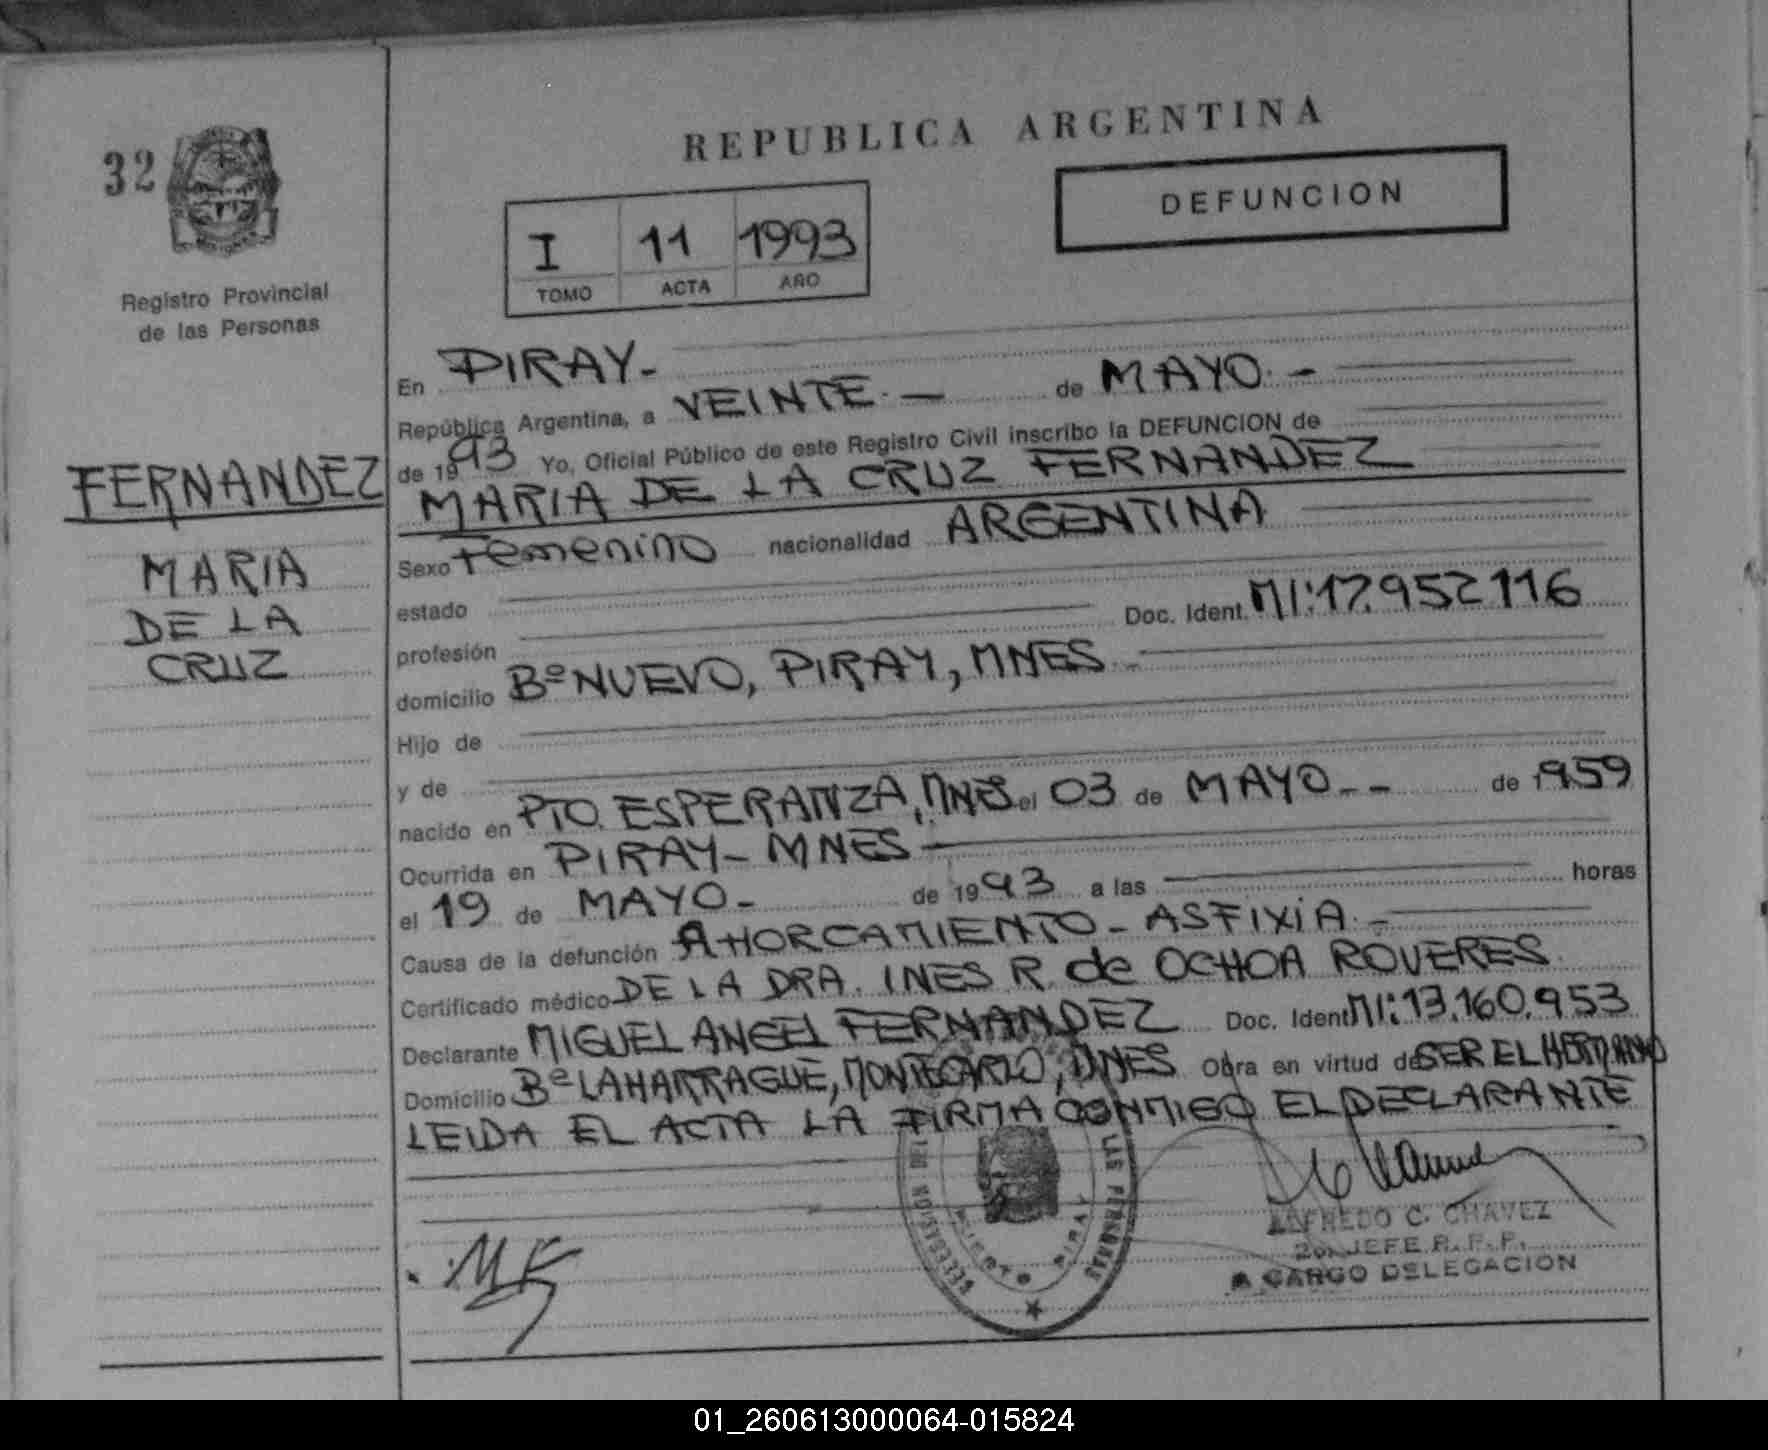 32
Registro Provincial
de las Personas
FERNANDEZ
MARIA
DE LA
CRUZ
REPUBLICA ARGENTINA
DEFUNCION
I 11 1993
TOMO ACTA AÑO
En PIRAY-
República Argentina, a VEINTE.- de MAYO.-
de 1993 Yo, Oficial Público de este Registro Civil inscribo la DEFUNCION de
MARIA DE LA CRUZ FERNANDEZ
Sexo Femenino nacionalidad ARGENTINA
estado
profesión Doc. Ident. MI:17.952116
domicilio Bº NUEVO, PIRAY, MNES.-
Hijo de
y de
nacido en PTO. ESPERANZA, MNES el 03 de MAYO-- de 1959
Ocurrida en PIRAY- MNES
el 19 de MAYO- de 1993 a las horas
Causa de la defunción AHORCAMIENTO- ASFIXIA.-
Certificado médico DE LA DRA. INES R. de OCHOA ROVERES
Declarante MIGUEL ANGEL FERNANDEZ Doc. Ident MI:13.160.953
Domicilio Bº LAHARRAGUE, MONTECARLO, MNES Obra en virtud de SER EL HERMANO
LEIDA EL ACTA LA FIRMA CONMIGO EL DECLARANTE
DELEGACION DEL LAS PERSONAS
PUERTO PIRAY
ALFREDO C. CHAVEZ
2o. JEFE R. P. P.
A CARGO DELEGACION
01_260613000064-015824